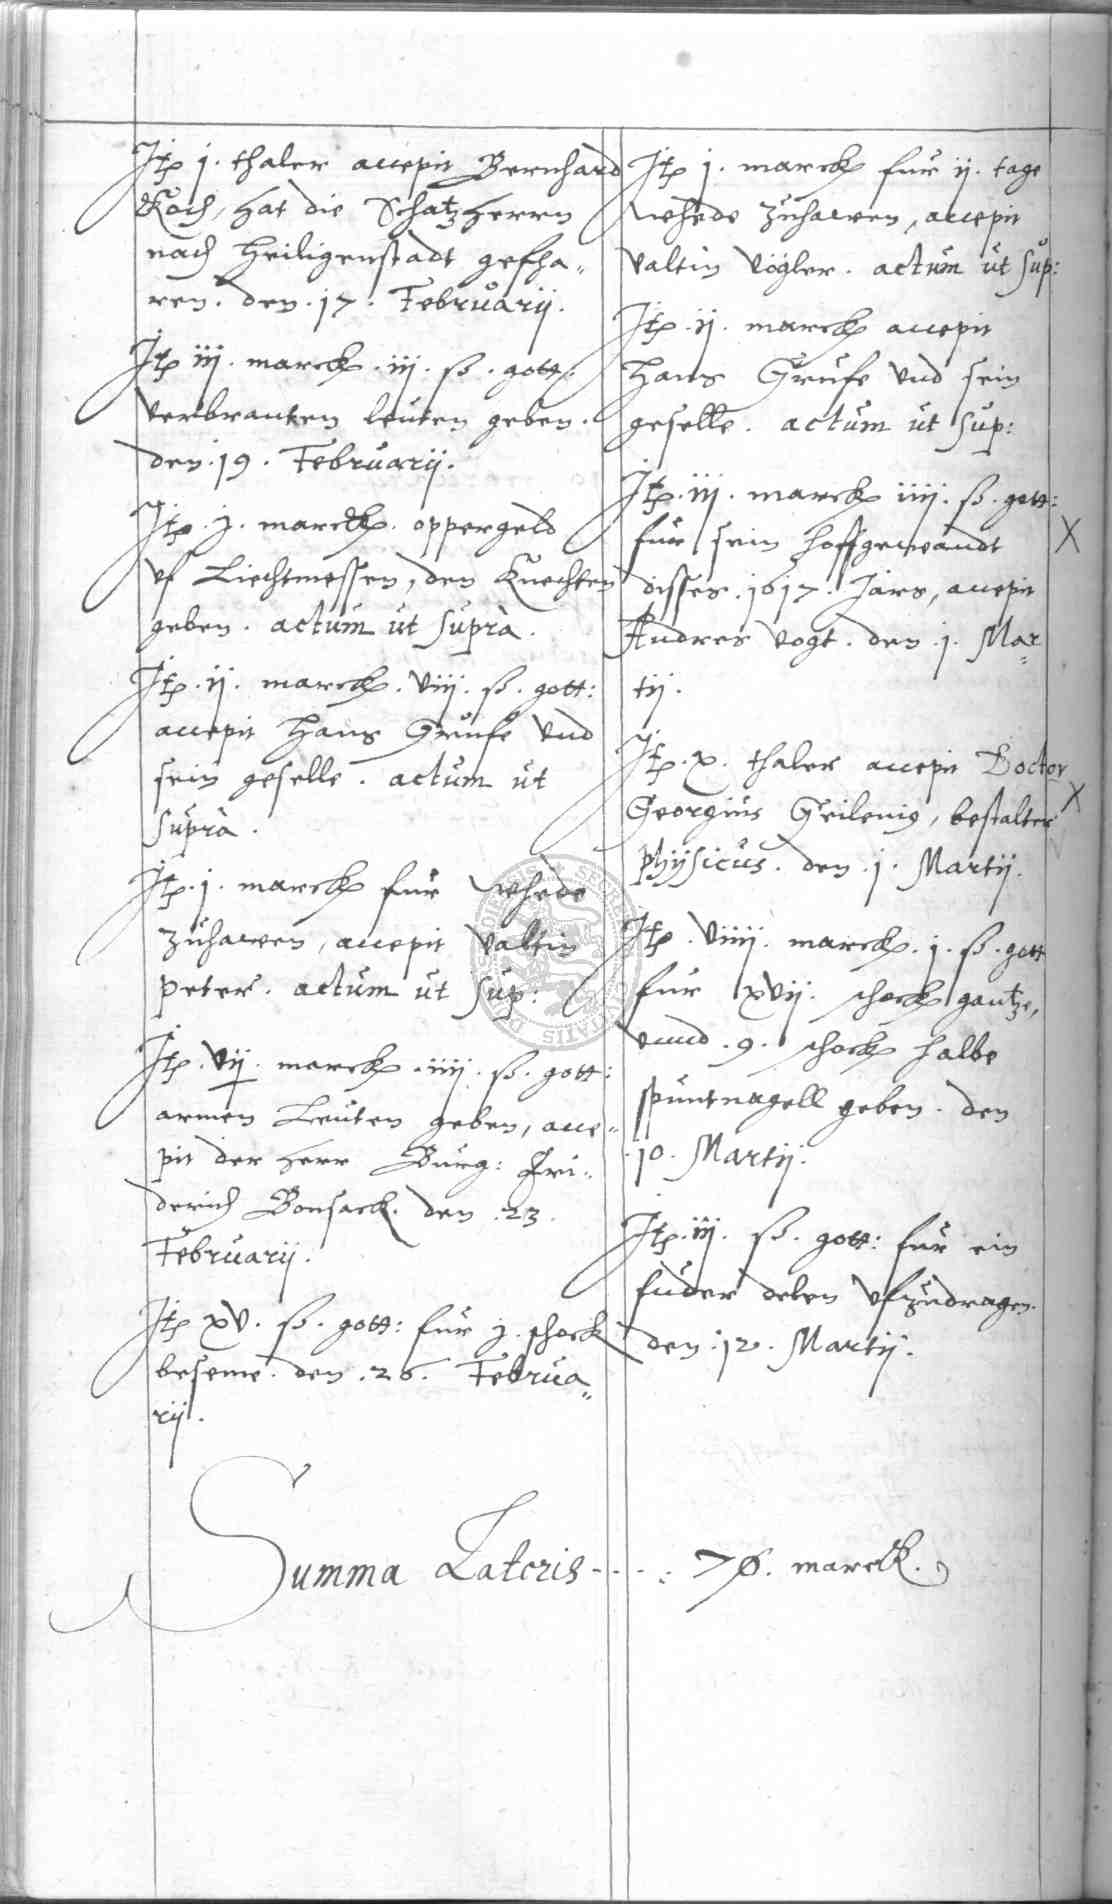 Itp j. thaler accepit Bernhard
Koch, hat die Schatzherrn
nach Heiligenstadt gefha„
ren. den .17. Februarij.
Itp iij. marck. iij. ß. gott:
verbranten leuten geben.
den .19. Februarij.
Itp. j. marck. oppergeld
uf Liechtmessen, den Knechten
geben. actum ut supra.
Itp. ij. marck. viij. ß. gott:
accepit Hans Grufe vnd
sein geselle. actum ut
supra.
Itp. j. marck fur whede
zuhawen, accepit Valtin
Peter. actum ut sup:
Itp. vij. marck. iiij. ß. gott:
armen Leuten geben, acce„
pit der Herr Burg: Fri„
derich Bonsack. den .23.
Februarij.
Itp xv. ß. gott: fur j. schock
beseme. den .26. Februa„
rij.
Itp j. marck fur ij. tage
whede zuhawen, accepit
Valtin Vögler. actum ut sup:
Itp. ij. marck accepit
Hans Grufe vnd sein
geselle. actum ut sup:
Itp. iij. marck iiij. ß. gott:
fur sein hoffgewandt
disses .1617. Jars, accepit
Andres Vogt. den .j. Mar„
tij.
Itp. x. thaler accepit Doctor
Georgius Geilenig, bestalter
physicus. den .j. Martij.
Itp. viiij. marck. j. ß. gott
fur xvij. schock gantze,
vnnd .9. schock halbe
spuntnagell geben. den
.10. Martij.
Itp. iij. ß. gott: fur ein
fuder delen ufzudragen.
den .12. Martij.
Summa Lateris ---- : 76. marck.